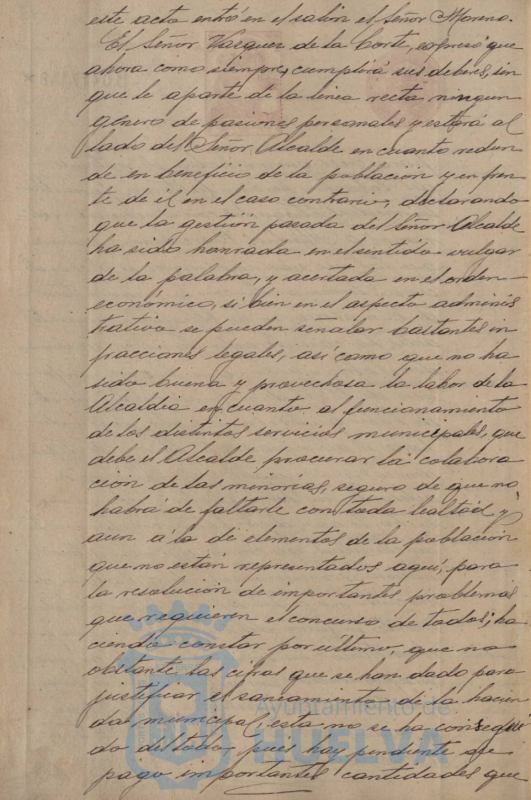 este acta entró en el salón el Señor Moreno.
El Señor Vazquez de la Corte, expresó que
ahora como siempre, cumplirá sus deberes, sin
que le aparte de la linea recta ningun
género de pasiones personales y estará al
lado del Señor Alcalde en cuanto redun
de en beneficio de la población y en fren
te de él en el caso contrario, declarando
que la gestión pasada del Señor Alcalde
ha sido honrada en el sentido vulgar
de la palabra, y acertada en el orden
economico, si bien en el aspecto adminis
trativo se pueden señalar bastantes in
fracciones legales, así como que no ha
sido buena y provechosa la labor de la
Alcaldia en cuanto al funcionamiento
de los distintos servicios municipales, que
debe el Alcalde procurar la colabora
ción de las minorias, seguro de que no
habrá de faltarle con toda lealtad y
aun á la de elementos de la población
que no están representados aquí, para
la resolución de importantes problemas
que requieren el concurso de todos; ha
ciendo constar por último, que no
obstante las cifras que se han dado para
justificar el saneamiento de la hacien
da municipal, esta no se ha consegui
do del todo, pues hay pendiente de
pago importantes cantidades que
Ayuntamiento de
HUELVA